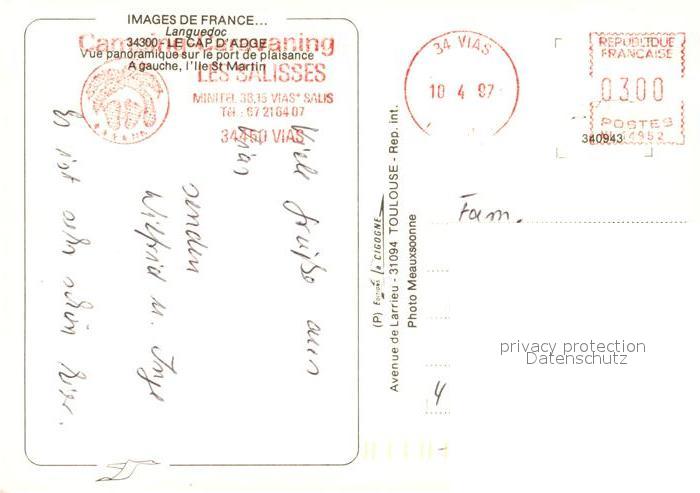 IMAGES DE FRANCE...
Languedoc
34300 - LE CAP D'ADGE
Vue panoramique sur le port de plaisance
A gauche, l'Ile St Martin
Camping Caravaning
LES SALISSES
MINITEL 36,15 VIAS* SALIS
Tél : 67 21 64 07
34450 VIAS
Viele Grüße aus
Vias
senden
Wilfried u. Inge
Es ist sehr schön hier.
(P) Editions la CIGOGNE
Avenue de Larrieu - 31094 TOULOUSE - Rep. int.
Photo Meauxsoonne
34 VIAS
10 4 87
REPUBLIQUE
FRANCAISE
03.00
POSTES
340943
Fam.
4
privacy protection
Datenschutz